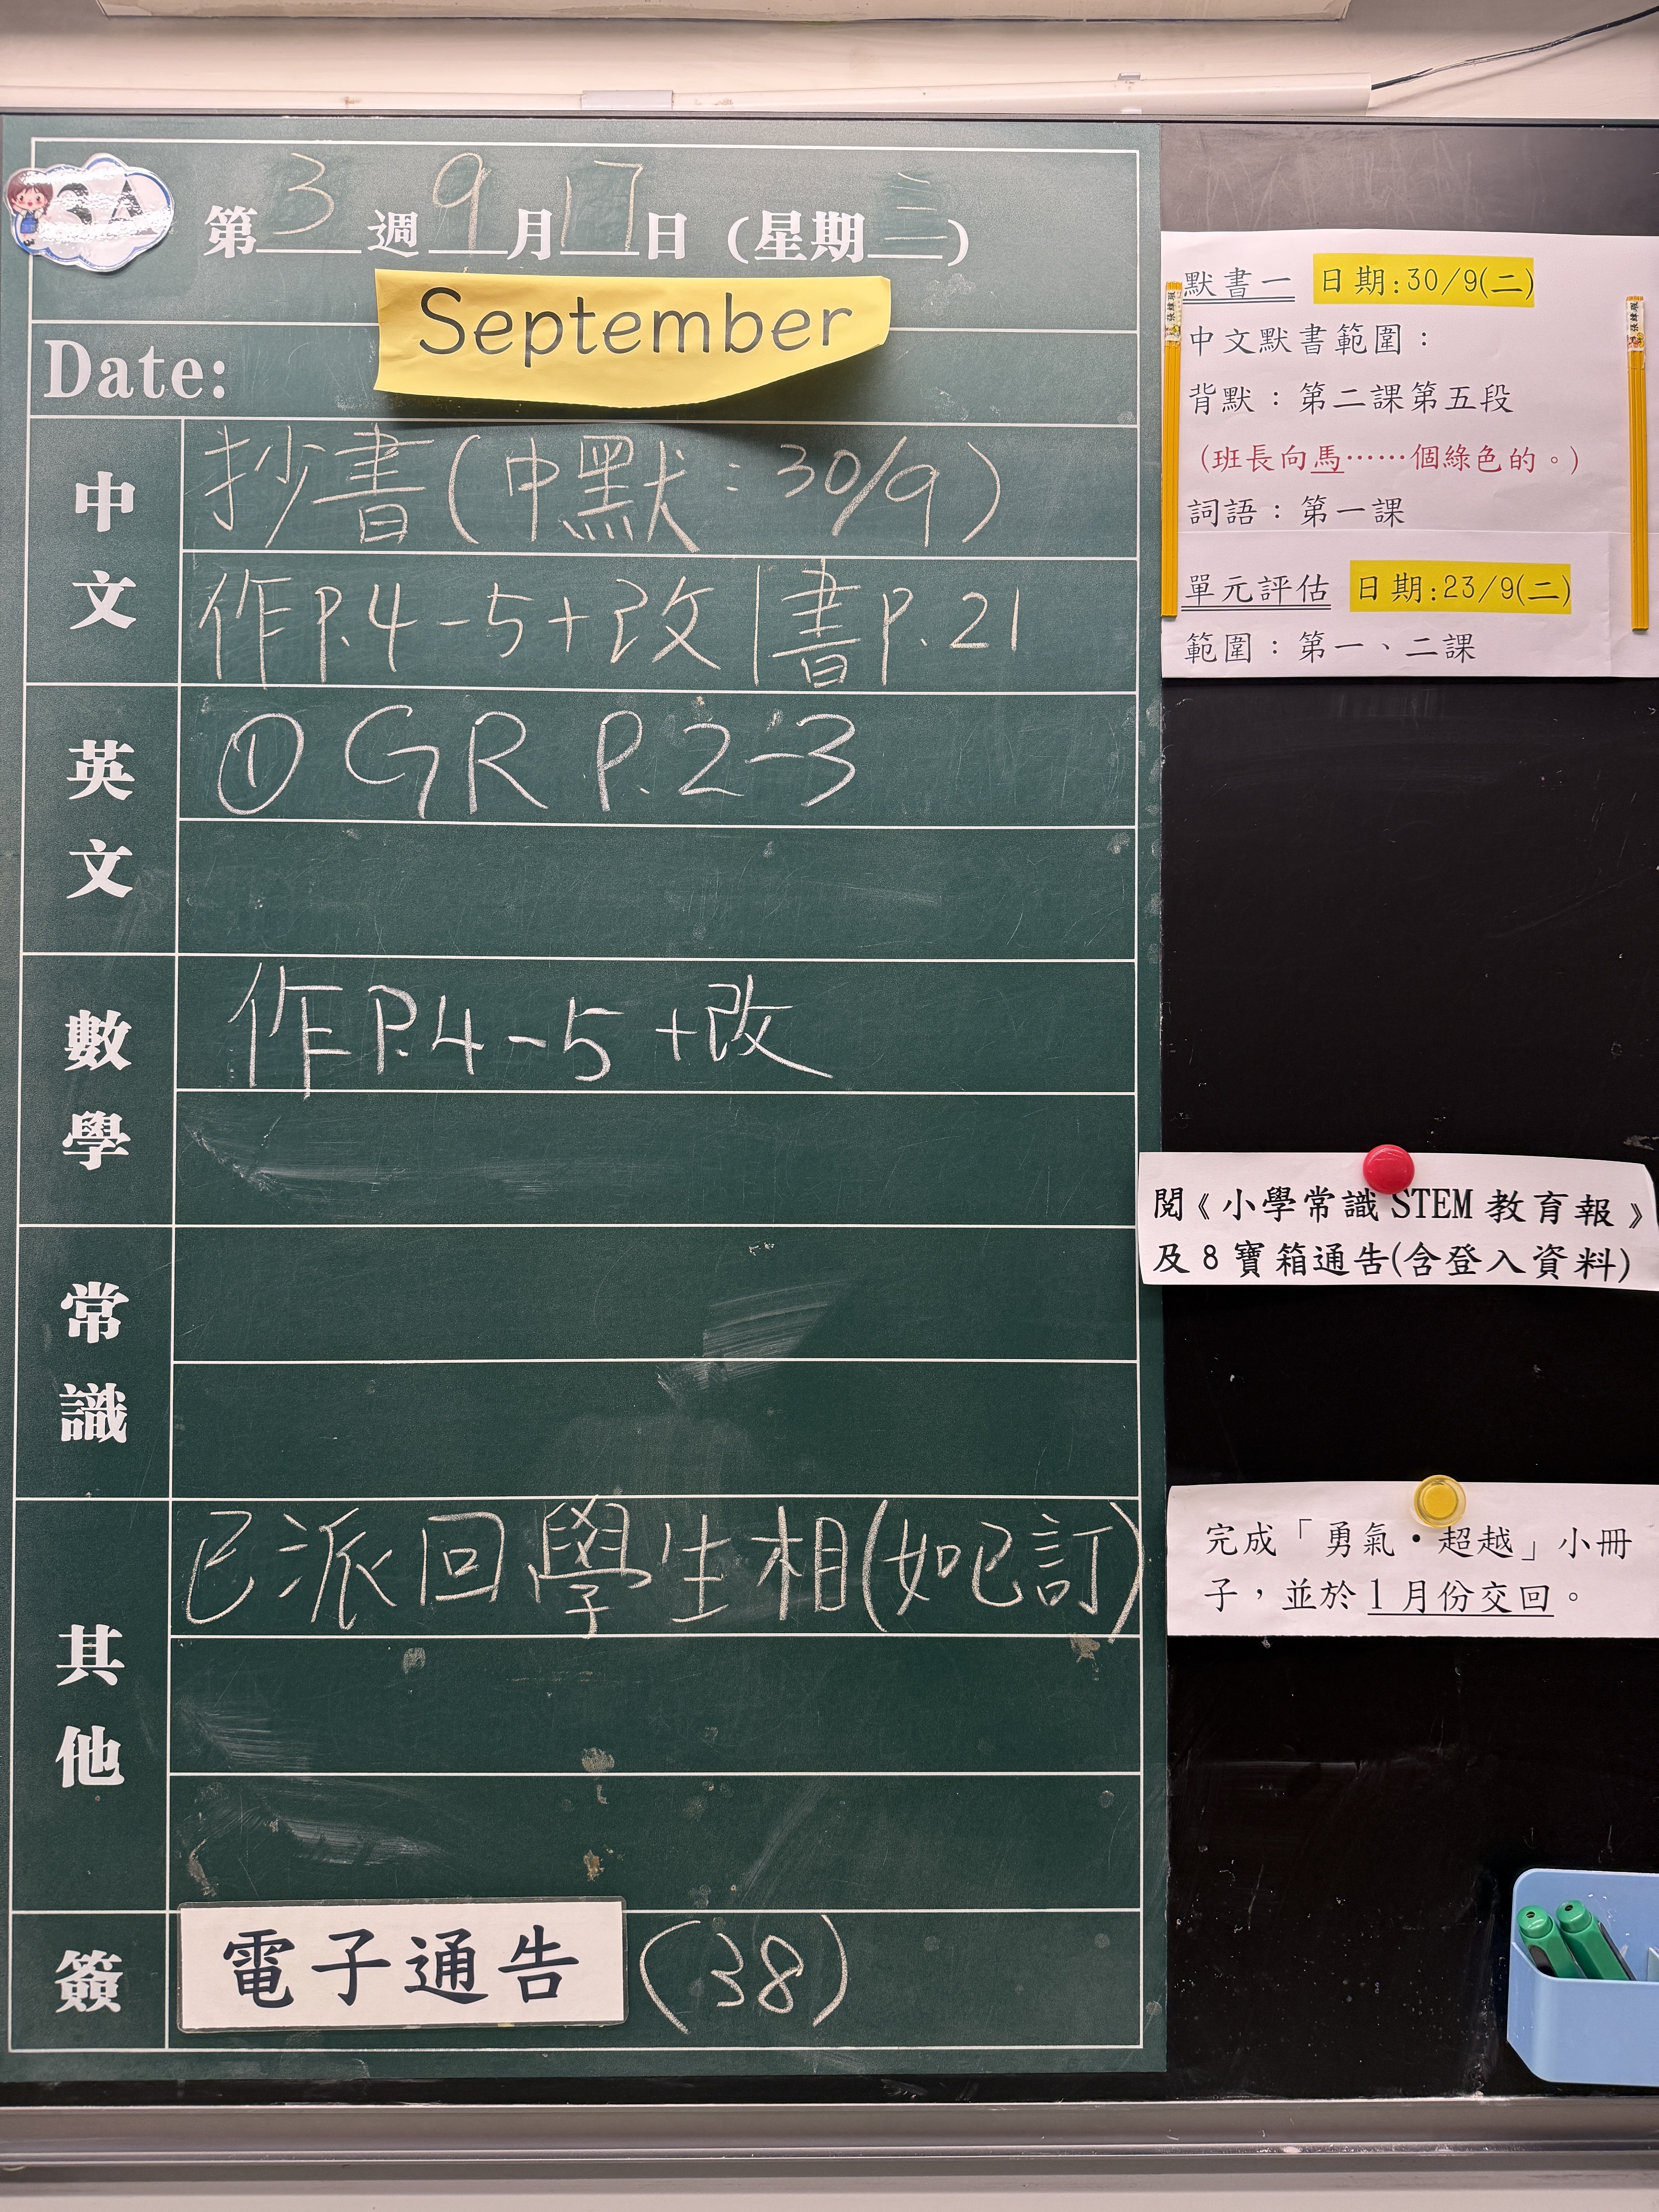 3A
第3週9月17日(星期三)
September
Date:
中文
抄書(中默:30/9)
作P.4-5+改|書P.21
英文
① GR P.2-3
數學
作P.4-5+改
常識
其他
已派回學生相(如已訂)
簽
電子通告(38)
默書一 日期:30/9(二)
中文默書範圍:
背默:第二課第五段
(班長向馬……個綠色的。)
詞語:第一課
單元評估 日期:23/9(二)
範圍:第一、二課
閱《小學常識 STEM 教育報》
及8寶箱通告(含登入資料)
完成「勇氣•超越」小冊
子,並於1月份交回。